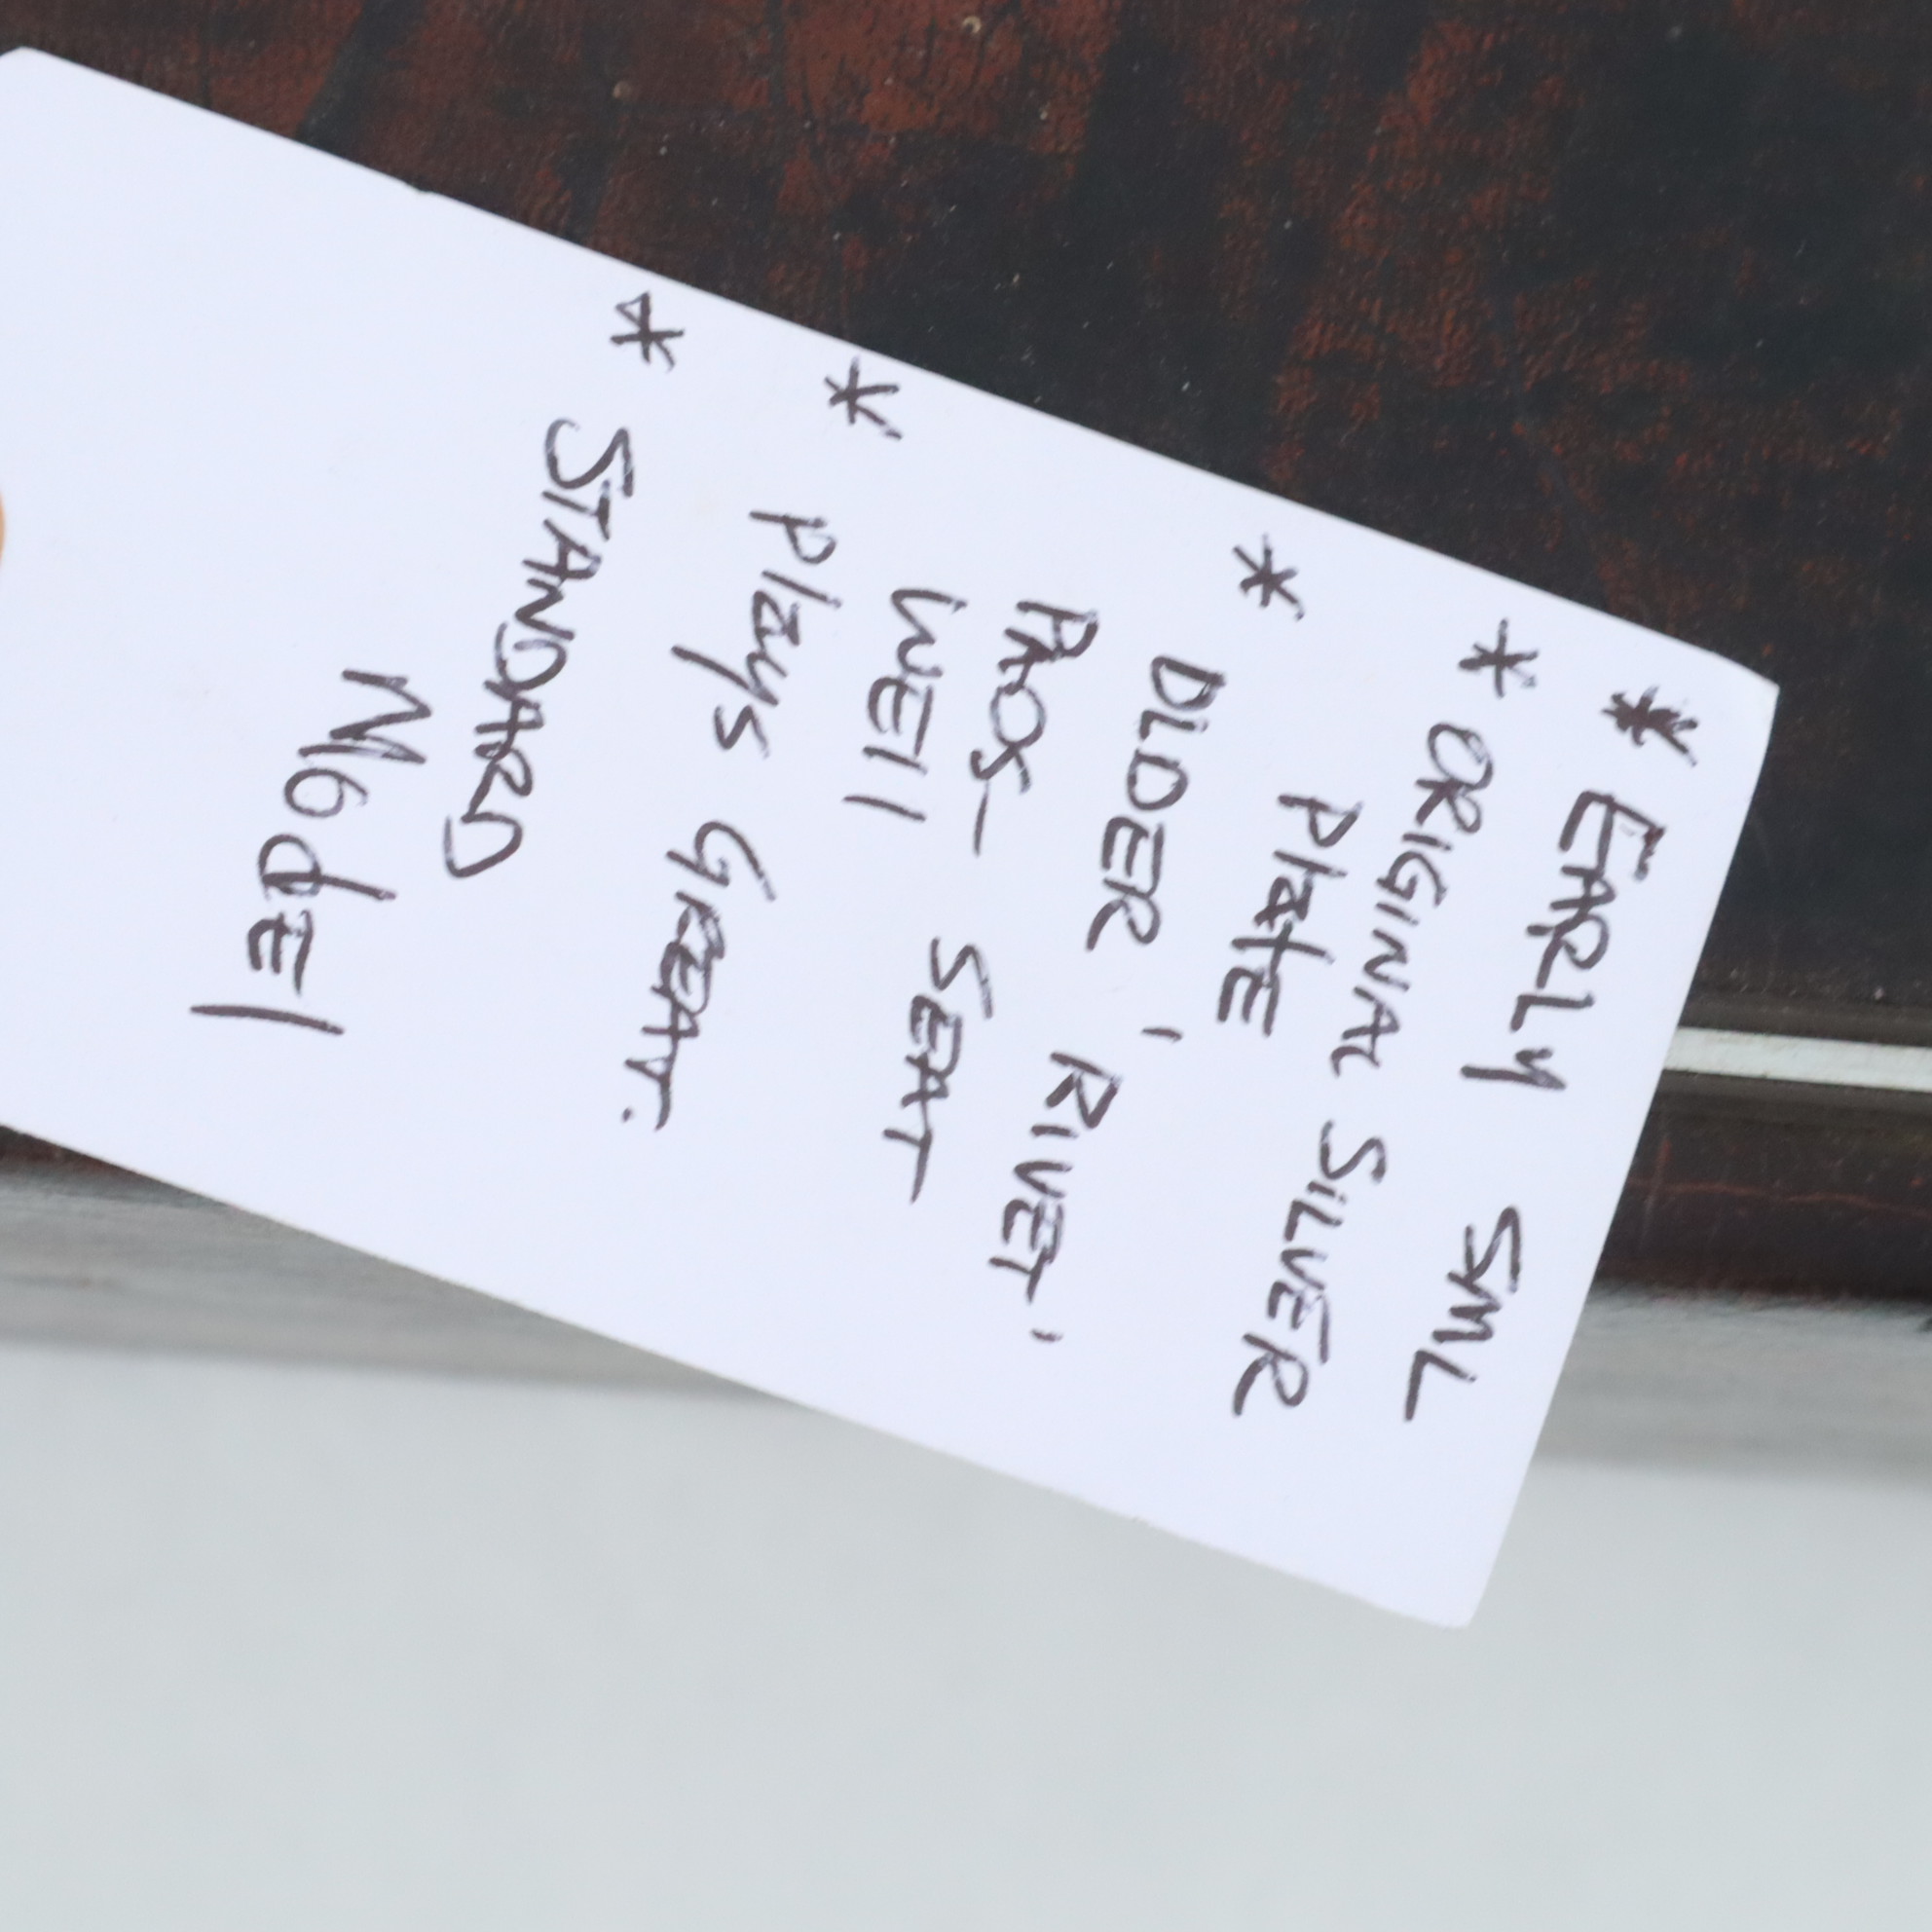 * EARLY SML
* ORIGINAL SILVER
PlatE
* OLDER 'RIVET'
PADS -
WEll SEAT
* Plays GREAT.
* STANDARD
ModEl